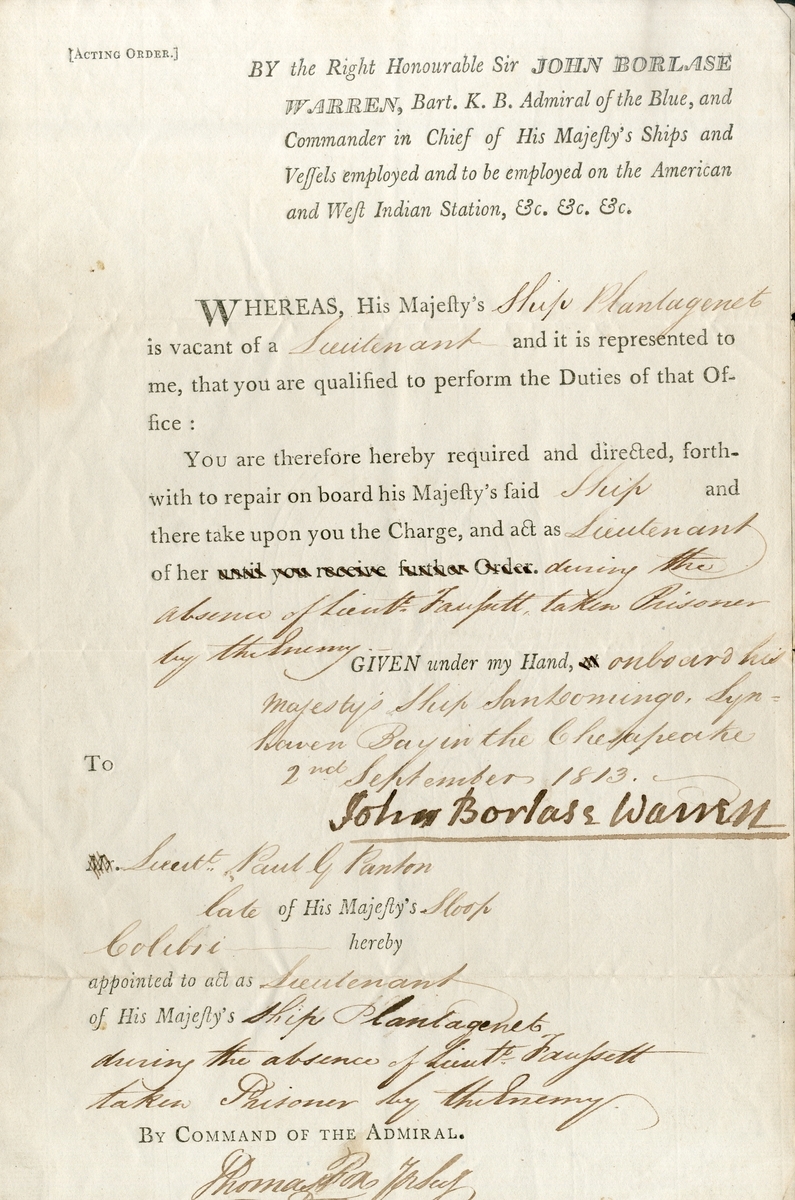 [ACTING ORDER.]
BY the Right Honourable Sir JOHN BORLASE
WARREN, Bart. K. B. Admiral of the Blue, and
Commander in Chief of His Majeſty's Ships and
Veſſels employed and to be employed on the American
and Weſt Indian Station, &c. &c. &c.
WHEREAS, His Majeſty's Ship Plantagenet
is vacant of a Lieutenant and it is represented to
me, that you are qualified to perform the Duties of that Of-
fice :
You are therefore hereby required and directed, forth-
with to repair on board his Majeſty's ſaid Ship and
there take upon you the Charge, and act as Lieutenant
of her until you receive further Order. during the
absence of Lieutt. Fauſsett, taken Prisoner
by the Enemy
GIVEN under my Hand, onboard his
Majesty's Ship San Domingo, Lyn=
haven Bay in the Chesapeake
2nd September 1813.
To
John Borlase Warren
Mr. Lieutt. Paul G Panton
late of His Majeſty's Sloop
Colibri hereby
appointed to act as Lieutenant
of His Majeſty's Ship Plantagenet
during the absence of Lieutt. Fauſsett
taken Prisoner by the Enemy.
BY COMMAND OF THE ADMIRAL.
Thomas Fox